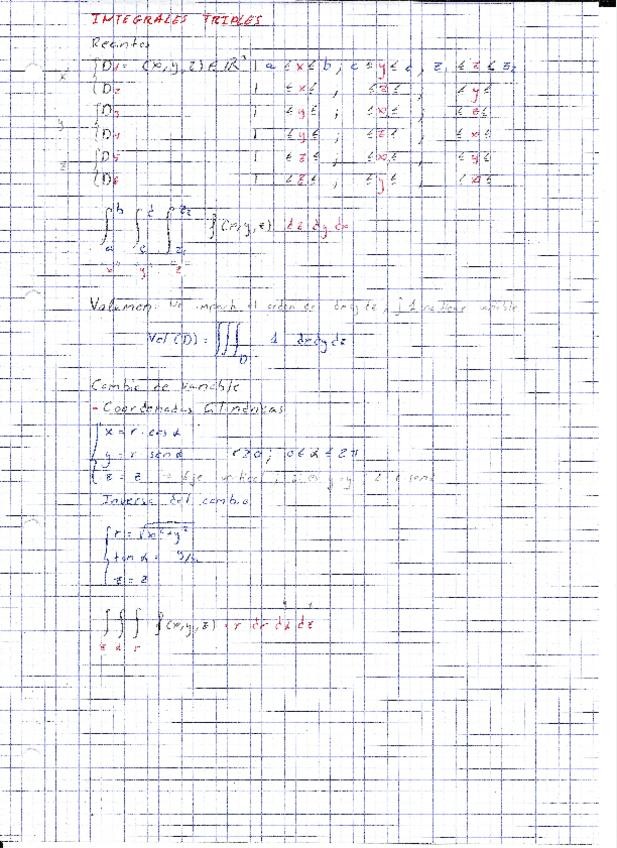 INTEGRALES TRIPLES
Recintos
D1 = (x,y,z) ∈ ℝ³ | a ≤ x ≤ b ; c ≤ y ≤ d , z1 ≤ z ≤ z2
D2 | ≤ x ≤ , ≤ z ≤ , ≤ y ≤
D3 | ≤ y ≤ ; ≤ x ≤ ; ≤ z ≤
D4 | ≤ y ≤ ; ≤ z ≤ ; ≤ x ≤
D5 | ≤ z ≤ ; ≤ x ≤ , ≤ y ≤
D6 | ≤ z ≤ , ≤ y ≤ , ≤ x ≤
∫_a^b ∫_c^d ∫_{z1}^{z2} f(x,y,z) dz dy dx
"x" "y" "z"
Volumen: No importa el orden de dxdydz, 1
Vol (D) = ∭_D 1 dxdydz
Cambio de variable
- Coordenadas Cilíndricas
x = r · cos α
y = r sen α r ≥ 0 ; 0 ≤ α ≤ 2π
z = z → Eje
Inversa del cambio
r = √x²+y²
tan α = y/x
z = z
∫∫∫ f(x,y,z) · r dr dα dz
z α r